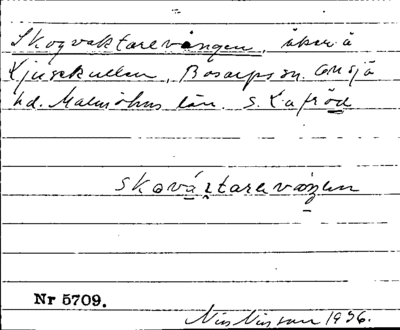 Skogvaktarevången, åker å
Ljusekullen, Bosarps sn. Onsjö
hd. Malmöhus län. S. Laröd
skovártarevången
Nr 5709.
Nils Nilsson 1936.